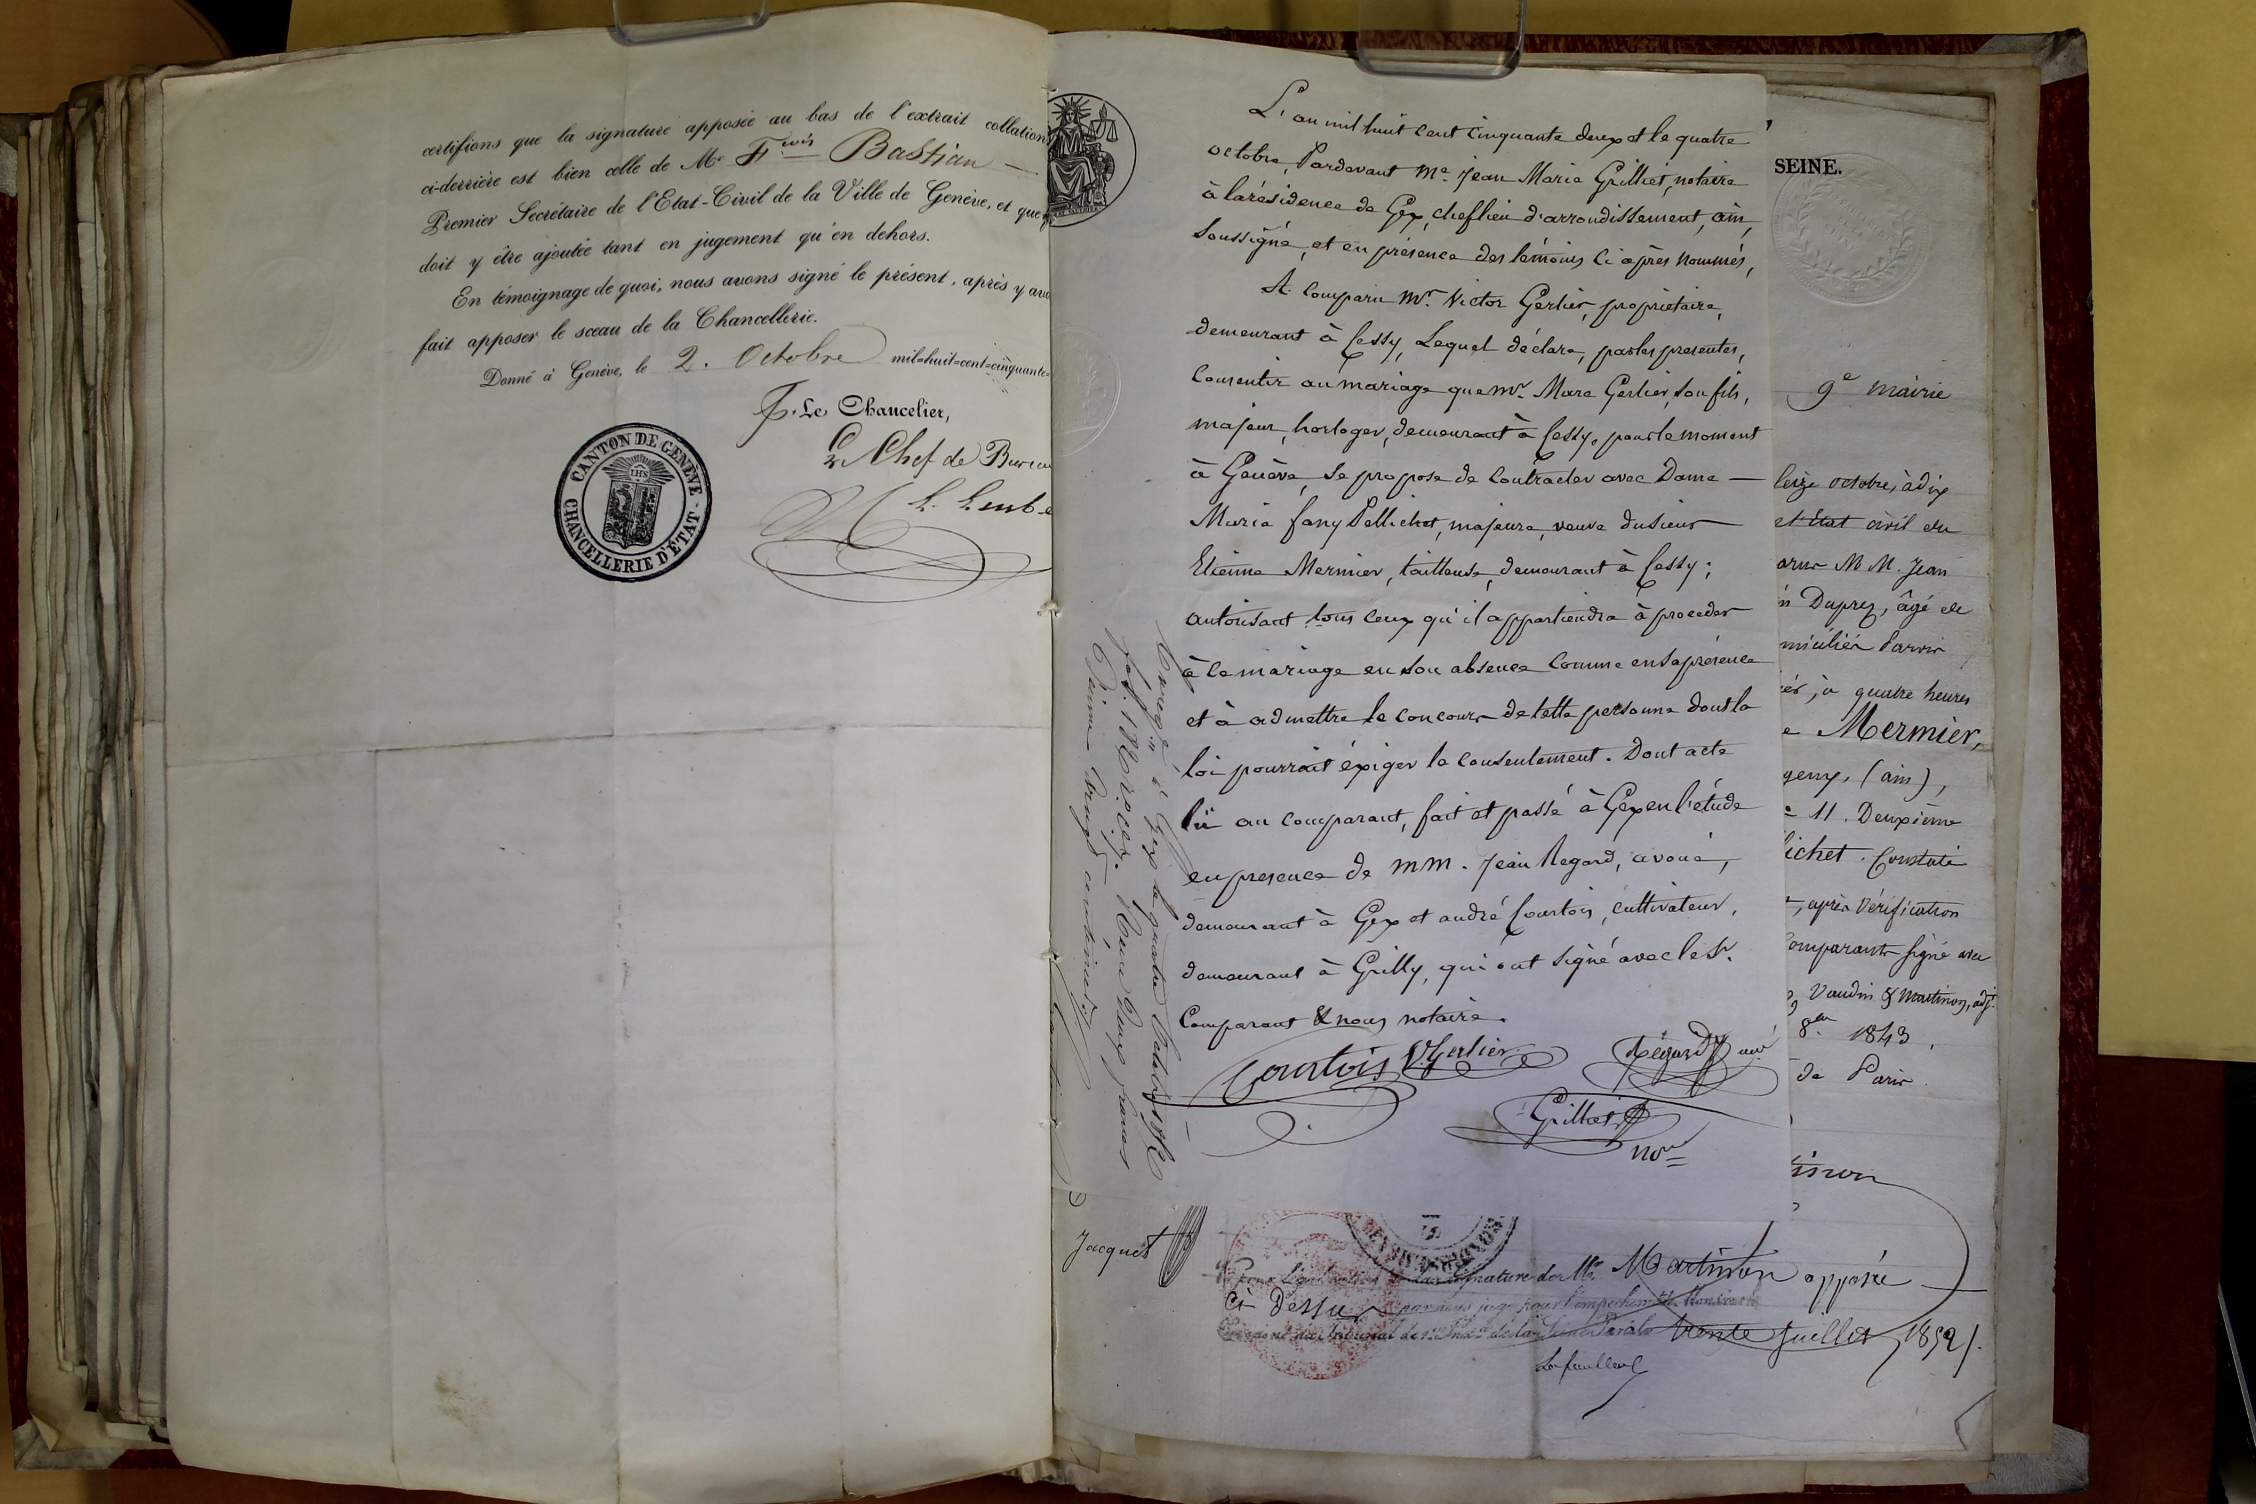 certifions que la signature apposée au bas de l'extrait collation
ci-derrière est bien celle de Mr. Fçois Bastian —
Premier Secrétaire de l'Etat-Civil de la Ville de Genève, et que
doit y être ajoutée tant en jugement qu'en dehors.
En témoignage de quoi, nous avons signé le présent, après y avo
fait apposer le sceau de la Chancellerie.
Donné à Genève, le 2. Octobre mil-huit-cent-cinquante-
P. Le Chancelier,
Le Chef de Bureau
CANTON DE GENEVE
CHANCELLERIE D'ÉTAT
IHS
L'an mil huit cent cinquante deux et le quatre
octobre, Pardevant Me. Jean Marie Grilliet, notaire
à la résidence de Gex, cheflieu d'arrondissement, ain,
soussigné, et en présence des témoins ci après nommés,
A comparu Mr. Victor Gerlier, propriétaire,
demeurant à Cessy, Lequel déclare, par les presentes,
Consentir au mariage que Mr. Marc Gerlier, son fils,
majeur, horloger, demeurant à Cessy, pour le moment
à Genève, se propose de Contracter avec Dame —
Marie fany Pellichet, majeure, veuve du sieur
Etienne Mermier, tailleuse, demeurant à Cessy;
autorisant tous ceux qu'il appartiendra à proceder
à ce mariage en son absence comme en sa présence
et à admettre le concours de telle personne dont la
loi pourrait éxiger le consentement. Dont acte
lu au comparant, fait et passé à Gex en l'étude
en presence de MM. Jean Regard, avoué,
demeurant à Gex et andré Courtois, cultivateur,
demeurant à Grilly, qui ont signé avec le Sr.
Comparant & nous notaire.
Courtois V. Gerlier Régard avé
Grilliet
nore
Enregé à Gex le quatre Octobre 1852
fol. Reçu deux francs
Décime vingt centimes
Jacquet
SEINE.
9e mairie
seize octobre, à dix
et Etat civil du
arus MM. Jean
n Duprez, âgé de
micilié Parvis
ès, à quatre heures
e Mermier,
geny, (ain),
11. Deuxième
lichet. Constaté
après Vérification
Comparants signé avec
Vaudin & Martinon, adj.
8bre 1843,
de Paris.
tinon
Pour légalisation de la signature de Mr. Martinon apposée
ci dessus par nous juge pour l'empechement de Monsieur le
Président du Tribunal de 1re Inst. de la Seine Paris le trente Juillet 1852.